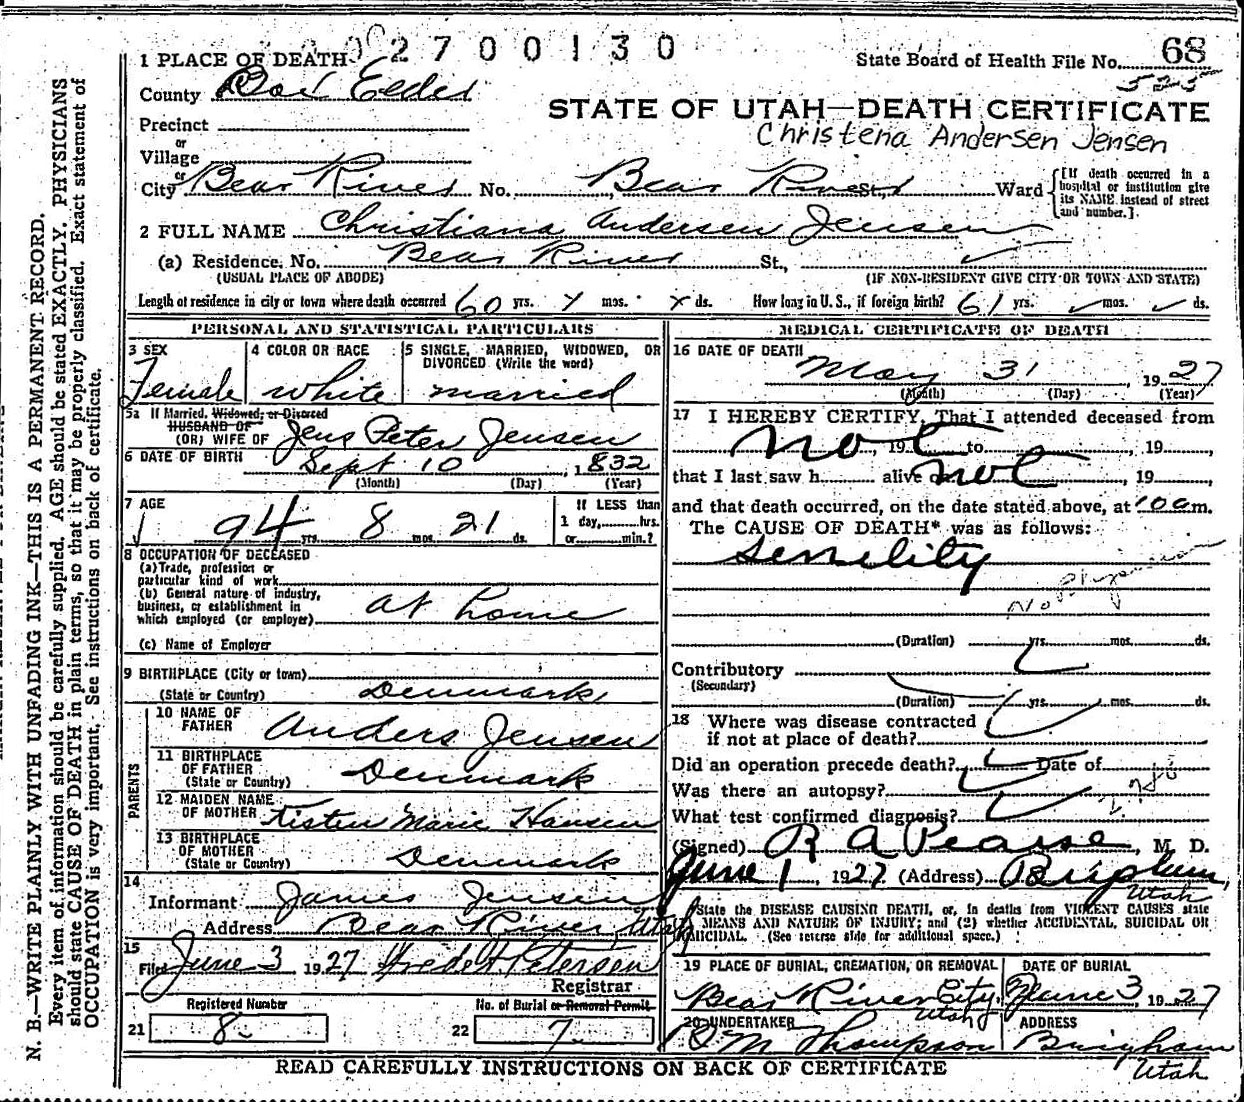 2700130
1 PLACE OF DEATH
State Board of Health File No. 68
525
County Box Elder
STATE OF UTAH—DEATH CERTIFICATE
Christena Andersen Jensen
Precinct
or
Village
or
City Bear River No. Bear River St., Ward
[If death occurred in a hospital or institution give its NAME instead of street and number.]
2 FULL NAME Christiana Andersen Jensen
(a) Residence, No. Bear River St.,
(USUAL PLACE OF ABODE) (IF NON-RESIDENT GIVE CITY OR TOWN AND STATE)
Length of residence in city or town where death occurred 60 yrs. mos. ds. How long in U. S., if foreign birth? 61 yrs. mos. ds.
PERSONAL AND STATISTICAL PARTICULARS
3 SEX
Female
4 COLOR OR RACE
white
5 SINGLE, MARRIED, WIDOWED, OR DIVORCED (Write the word)
married
5a If Married, Widowed, or Divorced
HUSBAND OF
(OR) WIFE OF Jens Peter Jensen
6 DATE OF BIRTH Sept 10, 1832
(Month) (Day) (Year)
7 AGE
94 yrs. 8 mos. 21 ds.
If LESS than
1 day, hrs.
or min.?
8 OCCUPATION OF DECEASED
(a) Trade, profession or
particular kind of work
(b) General nature of industry,
business, or establishment in
which employed (or employer) at home
(c) Name of Employer
9 BIRTHPLACE (City or town)
(State or Country) Denmark
PARENTS
10 NAME OF
FATHER Anders Jensen
11 BIRTHPLACE
OF FATHER
(State or Country) Denmark
12 MAIDEN NAME
OF MOTHER Kisten Marie Hansen
13 BIRTHPLACE
OF MOTHER
(State or Country) Denmark
14
Informant James Jensen
Address Bear River, Utah
15
Filed June 3 1927 Petersen
Registrar
Registered Number
21 8
No. of Burial or Removal Permit
22 7
MEDICAL CERTIFICATE OF DEATH
16 DATE OF DEATH
May 31, 1927
(Month) (Day) (Year)
17 I HEREBY CERTIFY, That I attended deceased from
not, 19 to , 19 ,
that I last saw h alive on not, 19 ,
and that death occurred, on the date stated above, at 10 a m.
The CAUSE OF DEATH* was as follows:
senility
No Physician
(Duration) yrs. mos. ds.
Contributory
(Secondary)
(Duration) yrs. mos. ds.
18 Where was disease contracted
if not at place of death?
Did an operation precede death? Date of
Was there an autopsy?
What test confirmed diagnosis?
(Signed) R A Pearse, M. D.
June 1, 1927 (Address) Brigham,
Utah
State the DISEASE CAUSING DEATH, or, in deaths from VIOLENT CAUSES state
MEANS AND NATURE OF INJURY; and (2) whether ACCIDENTAL, SUICIDAL OR
HOMICIDAL. (See reverse side for additional space.)
19 PLACE OF BURIAL, CREMATION, OR REMOVAL
Bear River City, Utah
DATE OF BURIAL
June 3, 1927
20 UNDERTAKER
M Thompson
ADDRESS
Brigham
Utah
READ CAREFULLY INSTRUCTIONS ON BACK OF CERTIFICATE
N. B.—WRITE PLAINLY WITH UNFADING INK—THIS IS A PERMANENT RECORD.
Every item of information should be carefully supplied. AGE should be stated EXACTLY. PHYSICIANS
should state CAUSE OF DEATH in plain terms, so that it may be properly classified. Exact statement of
OCCUPATION is very important. See instructions on back of certificate.